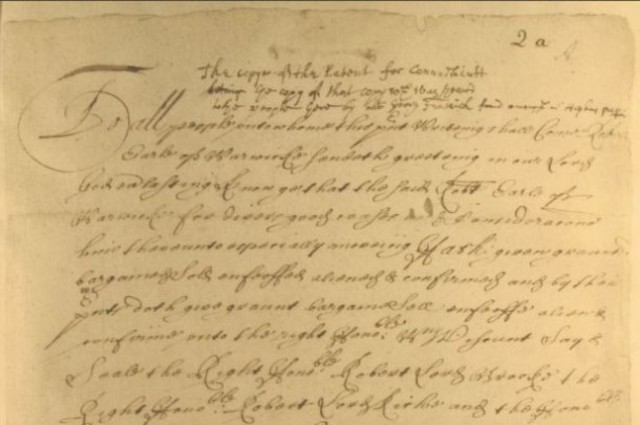 2 a A
The copye of the Patent for Connecticutt
being ye copy of that was
the people here by mr Georg Fenwick found amongst m Hopkins papers
To all people unto whome this pnt Writeing shall Come Robert
Earle of Warwicke sendeth greeteing in our Lord
God everlasting Know ye that the said Robt Earle of
Warwicke for divers good causes and Consideracons
him thereunto especially moveing Hath given graunted
bargained Sold enfeoffed aliened & confirmed and by these
pnts doth give graunt bargaine Sell enfeoffe aliene &
confirme unto the right Honoble Wm Viscount Say &
Seale the Right Honoble Robert Lord Brooke the
Right Honoble Robert Lord Riche and the Honoble